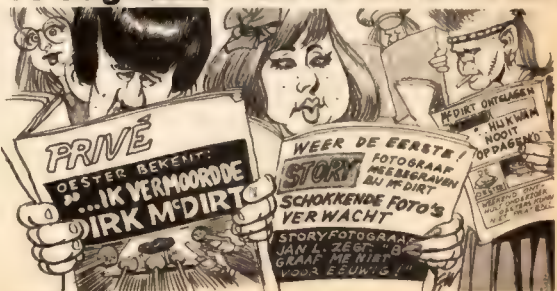 PRIVÉ
OESTER BEKENT:
"...IK VERMOORDDE
DIRK McDIRT
WEER DE EERSTE!
STORY
FOTOGRAAF
MEEBEGRAVEN
BIJ McDIRT
SCHOKKENDE FOTO'S
VERWACHT
STORYFOTOGRAAF
JAN L. ZEGT: "B
GRAAF ME NIET
VOOR EEUWIG!"
McDIRT ONTSLAGEN
"...HIJ KWAM
NOOIT
OPDAGEN"